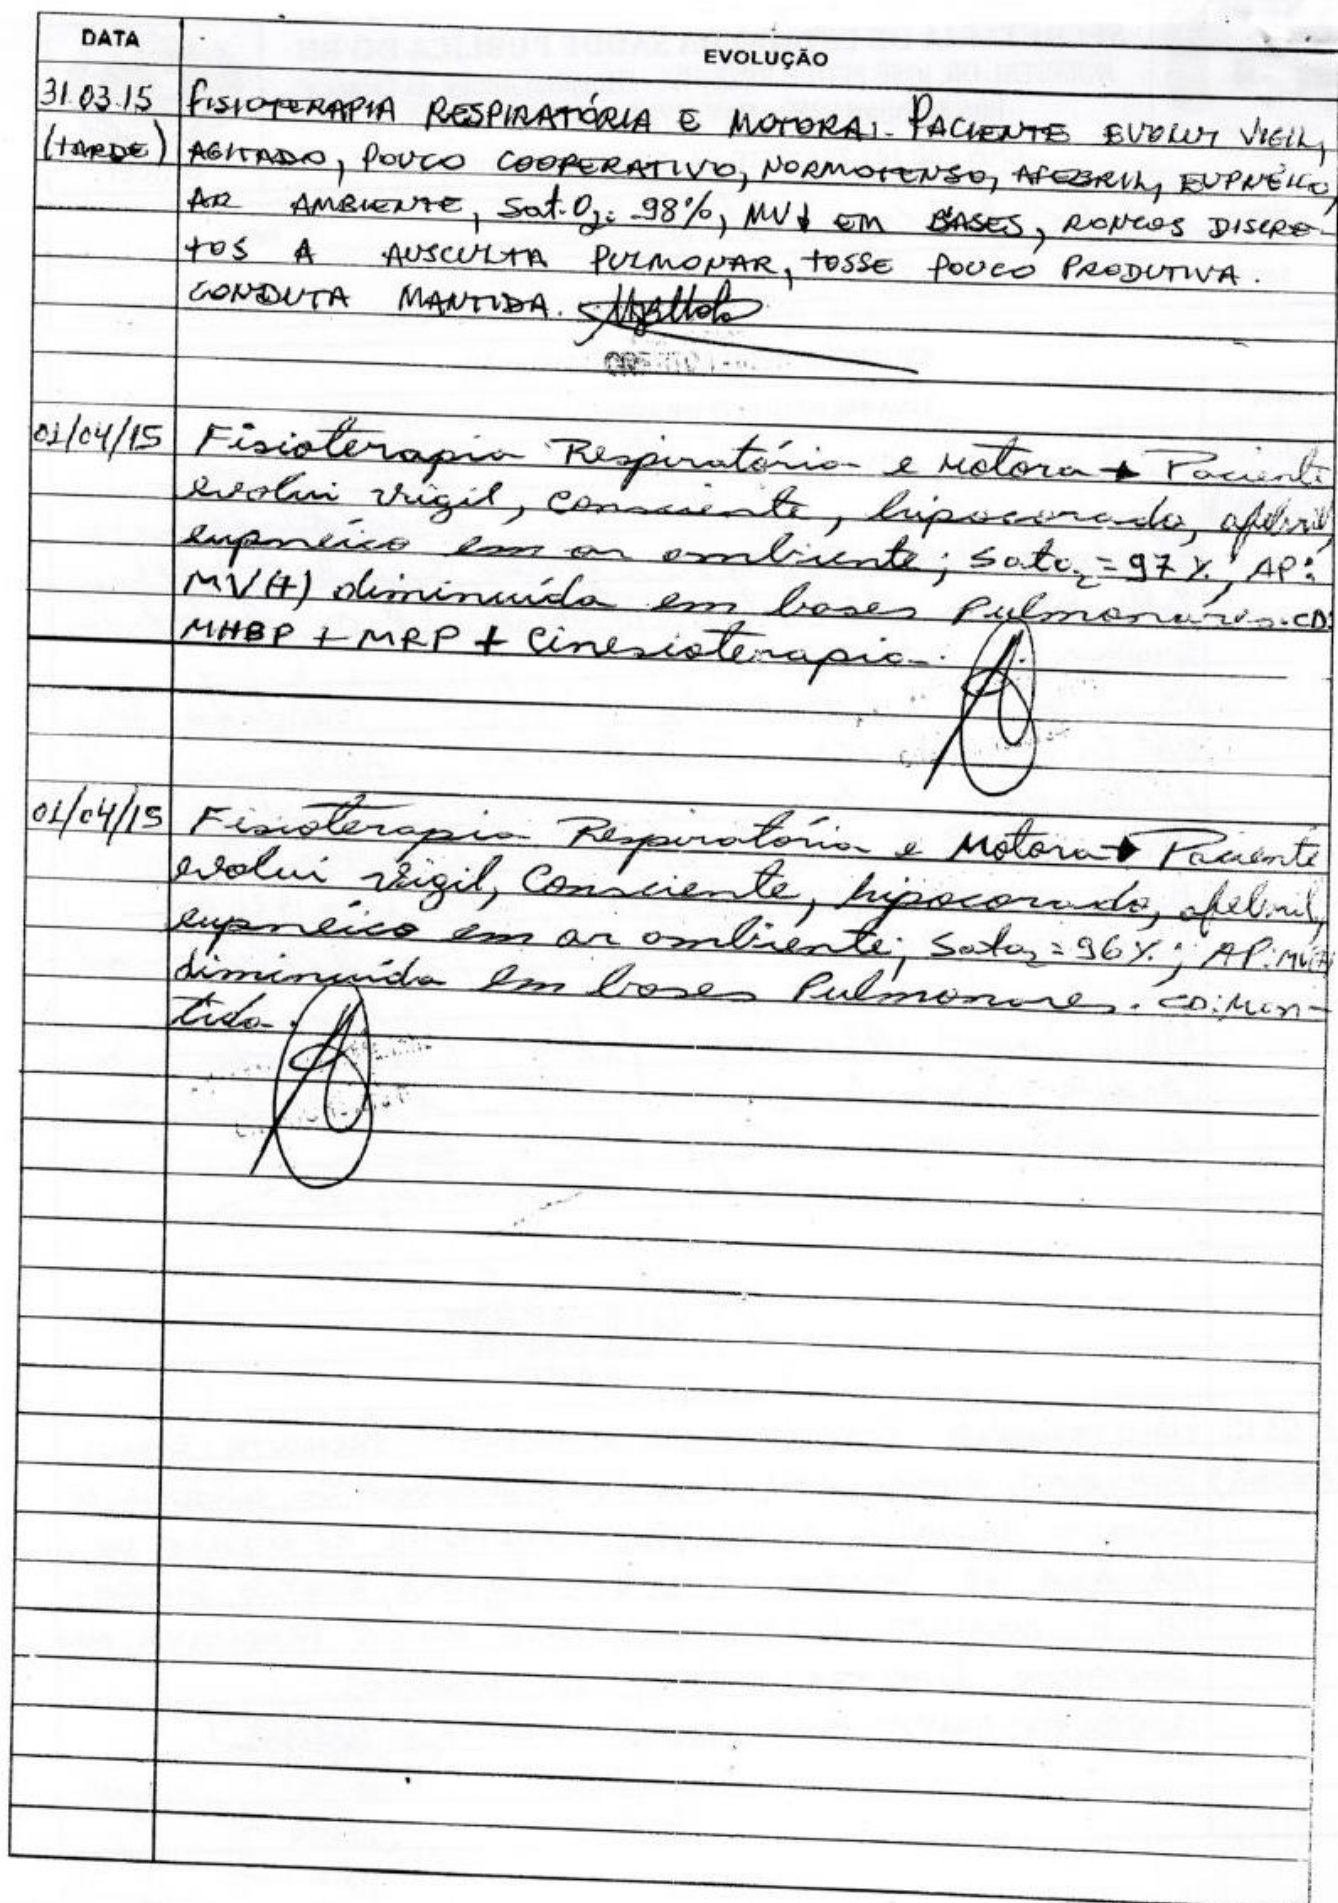 DATA
EVOLUÇÃO
31.03.15 FISIOTERAPIA RESPIRATÓRIA E MOTORA: - PACIENTE EVOLUI VIGIL,
(TARDE) AGITADO, POUCO COOPERATIVO, NORMOTENSO, AFEBRIL, EUPNÉICO,
AR AMBIENTE, Sat.O2: 98%, MV↓ EM BASES, RONCOS DISCRE-
TOS A AUSCULTA PULMONAR, TOSSE POUCO PRODUTIVA.
CONDUTA MANTIDA.
01/04/15 Fisioterapia Respiratória e Motora → Paciente
evolui vigil, consciente, hipocorado, afebril,
eupnéico em ar ambiente; SatO2 = 97%; AP:
MV(+) diminuído em bases Pulmonares. CD:
MHBP + MRP + Cinesioterapia.
01/04/15 Fisioterapia Respiratória e Motora → Paciente
evolui vigil, Consciente, hipocorado, afebril,
eupnéico em ar ambiente; SatO2 = 96%; AP: MV(+)
diminuído em bases Pulmonares. CD: Man-
tida.